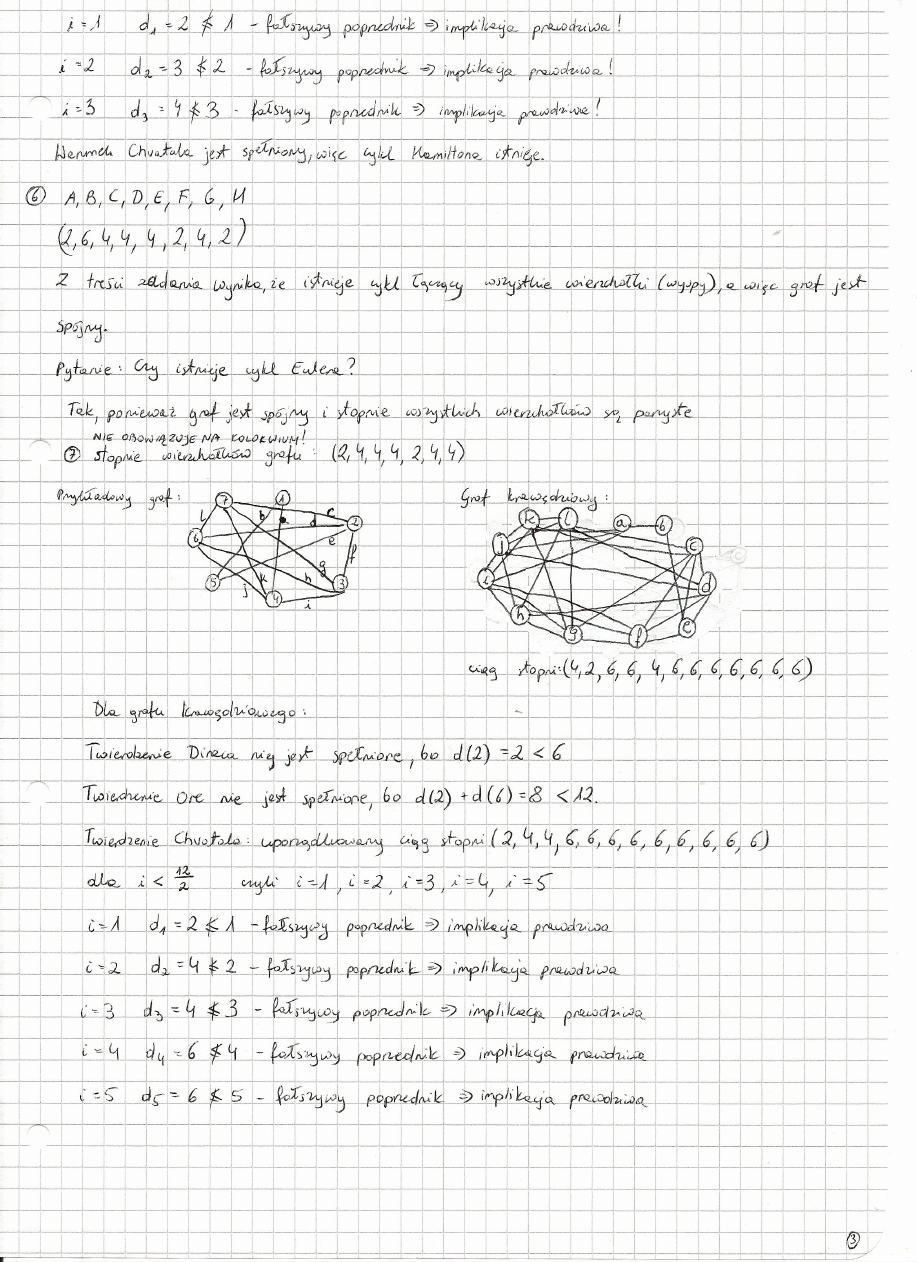 i=1 d₁=2 ≰ 1 - fałszywy poprzednik ⇒ implikacja prawdziwa!
i=2 d₂=3 ≰ 2 - fałszywy poprzednik ⇒ implikacja prawdziwa!
i=3 d₃=4 ≰ 3 - fałszywy poprzednik ⇒ implikacja prawdziwa!
Warunek Chvatala jest spełniony, więc cykl Hamiltona istnieje.
⑥ A, B, C, D, E, F, G, H
(2, 6, 4, 4, 4, 2, 4, 2)
Z treści zadania wynika, że istnieje cykl łączący wszystkie wierzchołki (wyspy), a więc graf jest
spójny.
Pytanie: Czy istnieje cykl Eulera?
Tak, ponieważ graf jest spójny i stopnie wszystkich wierzchołków są parzyste
NIE OBOWIĄZUJE NA KOLOKWIUM!
⑦ stopnie wierzchołków grafu: (2, 4, 4, 4, 2, 4, 4)
Przykładowy graf:
7 1 2 6 5 4 3
l b c d e f g h k j i
Graf krawędziowy:
k l a b j c i d h g f e
ciąg stopni: (4, 2, 6, 6, 4, 6, 6, 6, 6, 6, 6, 6)
Dla grafu krawędziowego:
Twierdzenie Diraca nie jest spełnione, bo d(2) = 2 < 6
Twierdzenie Ore nie jest spełnione, bo d(2) + d(6) = 8 < 12.
Twierdzenie Chvatala: uporządkowany ciąg stopni (2, 4, 4, 6, 6, 6, 6, 6, 6, 6, 6, 6)
dla i < 12/2 czyli i=1, i=2, i=3, i=4, i=5
i=1 d₁=2 ≰ 1 - fałszywy poprzednik ⇒ implikacja prawdziwa
i=2 d₂=4 ≰ 2 - fałszywy poprzednik ⇒ implikacja prawdziwa
i=3 d₃=4 ≰ 3 - fałszywy poprzednik ⇒ implikacja prawdziwa
i=4 d₄=6 ≰ 4 - fałszywy poprzednik ⇒ implikacja prawdziwa
i=5 d₅=6 ≰ 5 - fałszywy poprzednik ⇒ implikacja prawdziwa
③